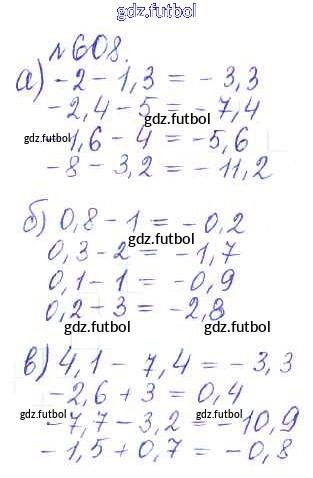 gdz.futbol
№608.
а) -2 - 1,3 = -3,3
-2,4 - 5 = -7,4
gdz.futbol
gdz.futbol
-1,6 - 4 = -5,6
-8 - 3,2 = -11,2
б) 0,8 - 1 = -0,2
gdz.futbol
0,3 - 2 = -1,7
0,1 - 1 = -0,9
0,2 - 3 = -2,8
gdz.futbol
gdz.futbol
в) 4,1 - 7,4 = -3,3
-2,6 + 3 = 0,4
gdz.futbol
gdz.futbol
-7,7 - 3,2 = -10,9
-1,5 + 0,7 = -0,8
gdz.futbol